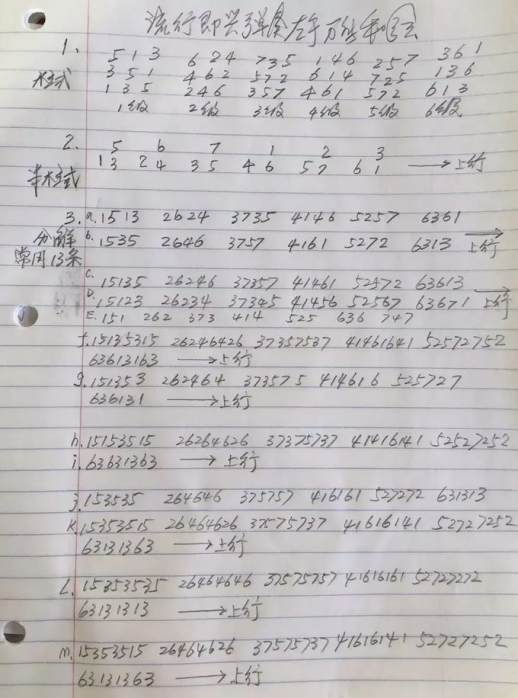 流行即兴弹奏左手万能和弦
1. 5 1 3 6 2 4 7 3 5 1 4 6 2 5 7 3 6 1
3 5 1 4 6 2 5 7 2 6 1 4 7 2 5 1 3 6
柱式 1 3 5 2 4 6 3 5 7 4 6 1 5 7 2 6 1 3
1级 2级 3级 4级 5级 6级
2. 5 6 7 1 2 3
1 3 2 4 3 5 4 6 5 7 6 1 →上行
半柱式
3. a. 1513 2624 3735 4146 5257 6361
分解 b. 1535 2646 3757 4161 5272 6313 上行
常用13条
C. 15135 26246 37357 41461 52572 63613
D. 15123 26234 37345 41456 52567 63671 上行
E. 151 262 373 414 525 636 747
f. 15135315 26246426 37357537 41461641 52572752
63613163 →上行
g. 151353 262464 373575 414616 525727
636131 →上行
h. 15153515 26264626 37375737 41416141 52527252
i. 63631363 →上行
j. 153535 264646 375757 416161 527272 631313
K. 15353515 26464626 37575737 41616141 52727252
63131363 →上行
L. 15353535 26464646 37575757 41616161 52727272
63131313 →上行
m. 15353515 26464626 37575737 41616141 52727252
63131363 →上行